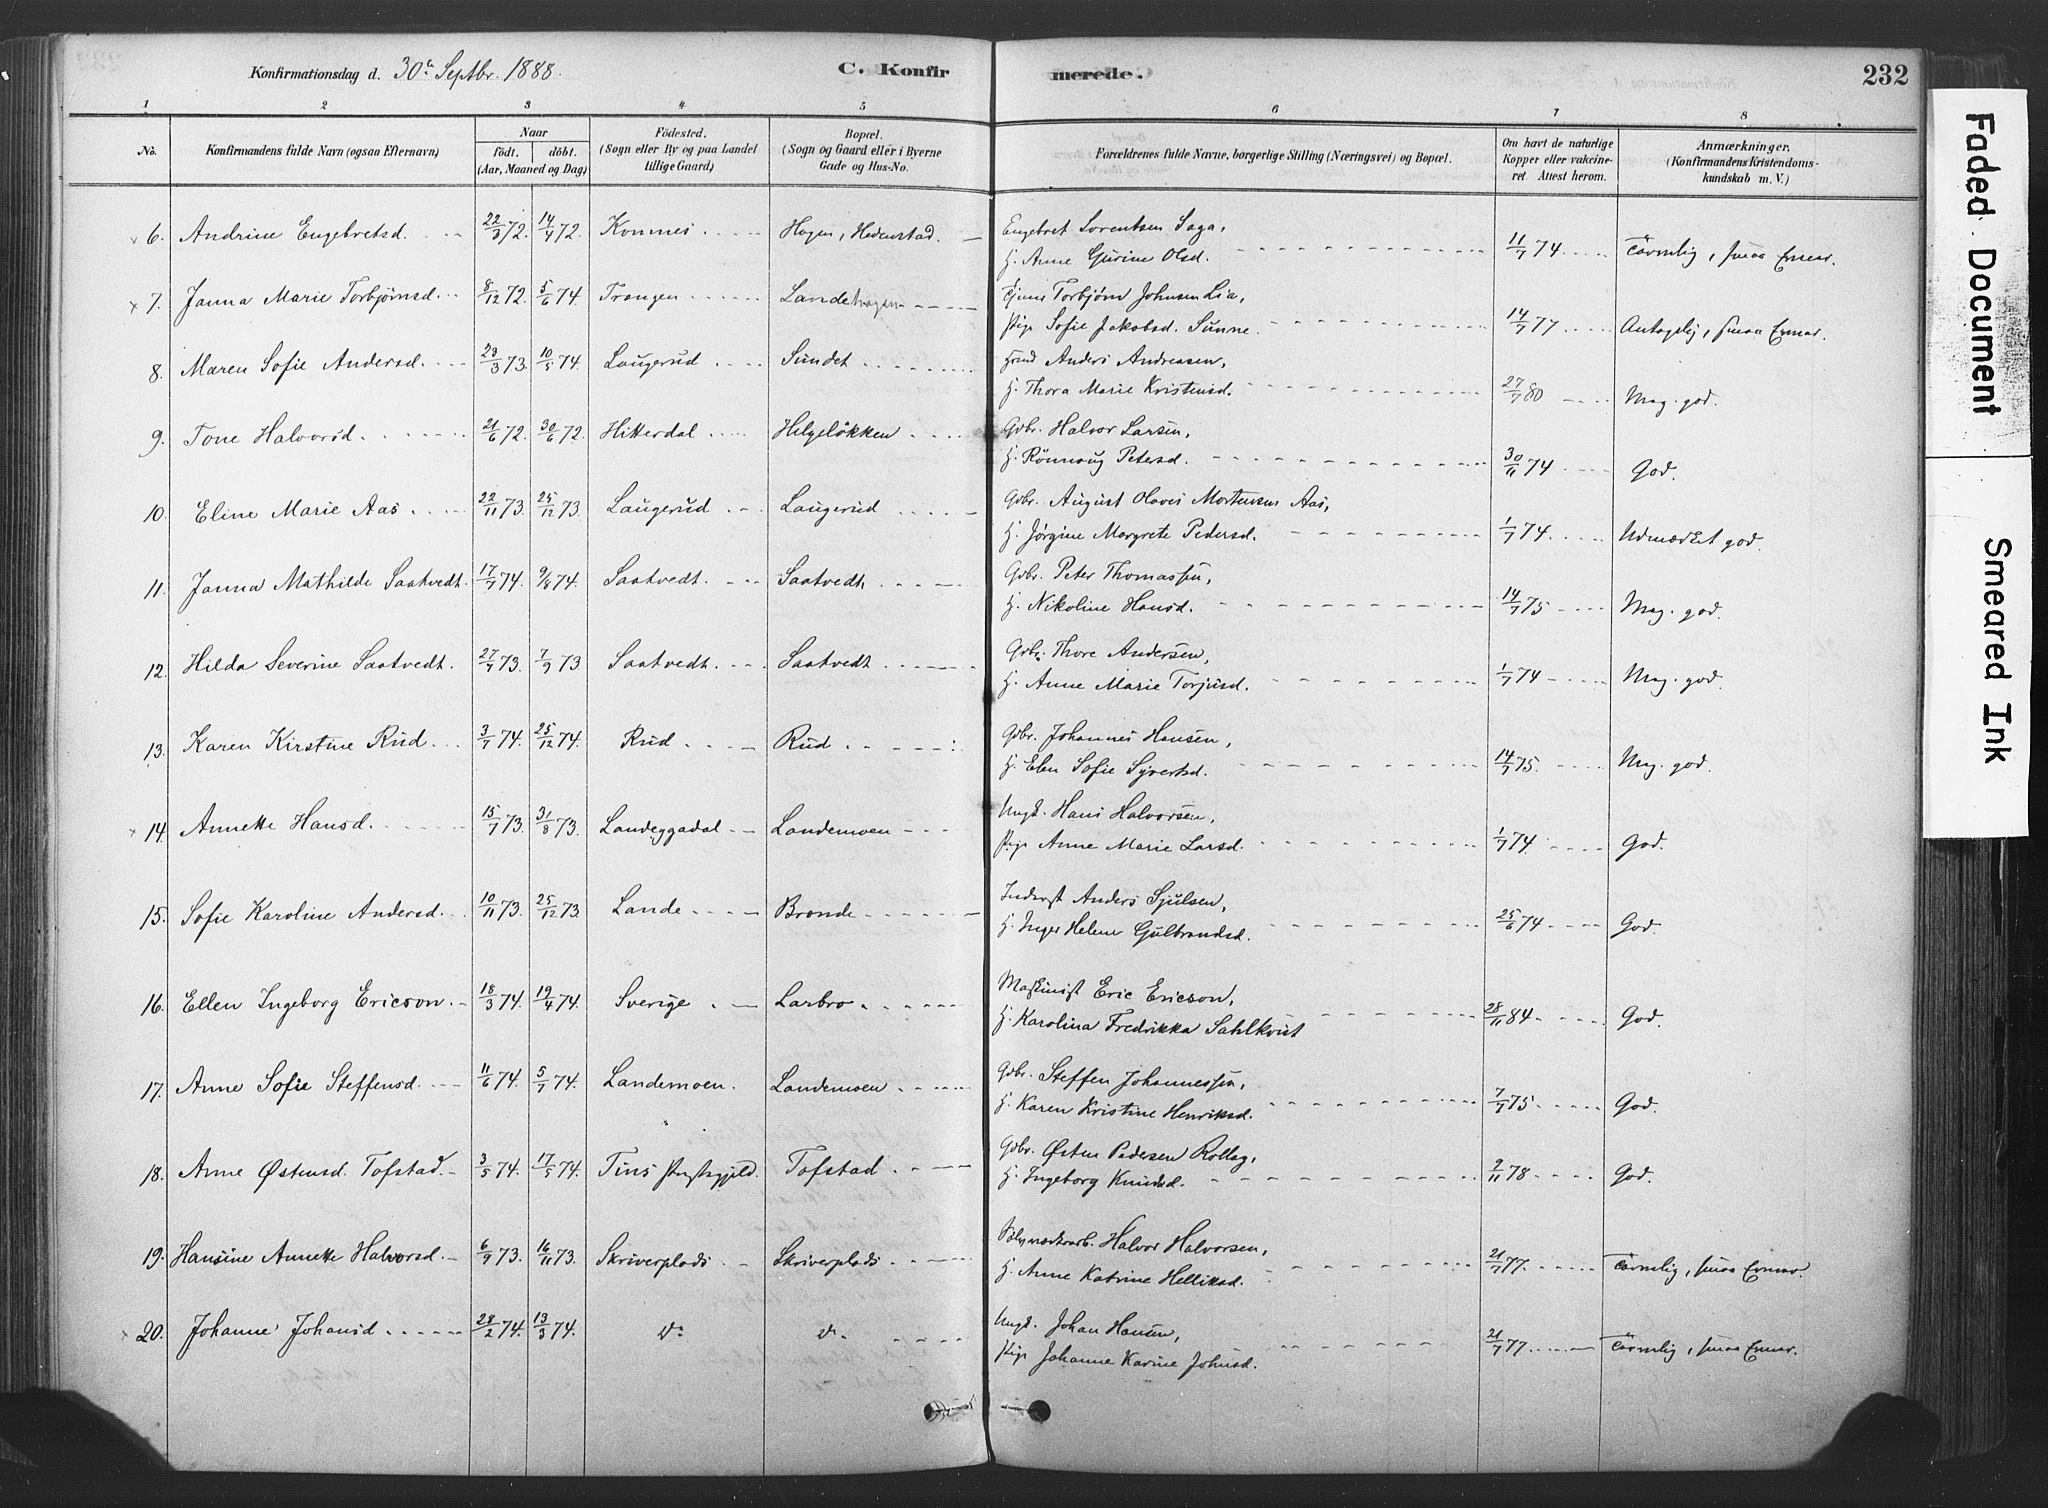 Konfirmationsdag d. 30te Septbr. 1888. C. Konfirmerede. 232
1 2 3 4 5 6 7 8
No. Konfirmandens fulde Navn (ogsaa Efternavn) Naar födt. döbt. (Aar, Maaned og Dag) Födested. (Sogn eller By og paa Landet tillige Gaard) Bopæl. (Sogn og Gaard eller i Byerne Gade og Hus-No. Forældrenes fulde Navne, borgerlige Stilling (Næringsvei) og Bopæl. Om havt de naturlige Kopper eller vakcineret. Attest herom. Anmærkninger. (Konfirmandens Kristendomskundskab m. V.)
× 6. Andrine Engebretsd. 22/3 72. 14/4 72. Komnes Hagen, Hedenstad. Engebret Lorentsen Saga,
H. Anne Gurine Olsd. 11/7 74 Tarvelig, smaa Evner.
× 7. Janna Marie Torbjörnsd. 8/12 72. 5/6 74. Trangen Landehagen Torbjörn Johnsen Lia,
Pige Sofie Jakobsd. Sunne. 14/7 77 Antagelig, smaa Evner.
8. Maren Sofie Andersd. 23/3 73. 10/5 74. Laugerud Sundet Anders Andreasen,
H. Thora Marie Kristensd. 27/7 80 Meg. god.
9. Tone Halvorsd. 21/6 72. 30/6 72. Hitterdal Helgelökken Gdbr. Halvor Larsen,
H. Rönnaug Petersd. 30/11 74 God.
10. Eline Marie Aas 22/11 73. 25/12 73. Laugerud Laugerud Gdbr. August Olaves Mortensen Aas,
H. Jørgine Margrete Pedersd. 1/7 74 Udmærket god.
11. Janna Mathilde Saatvedt. 17/7 74. 9/8 74. Saatvedt. Saatvedt Gdbr. Peter Thomassen,
H. Nikoline Hansd. 14/7 75 Meg. god.
12. Hilda Severine Saatvedt. 27/7 73. 7/9 73 Saatvedt. Saatvedt Gdbr. Thore Andersen,
H. Anne Marie Torjusd. 1/7 74 Meg. god.
13. Karen Kirstine Rud. 3/7 74. 25/12 74. Rud Rud Gdbr. Johannes Hansen,
H. Elen Sofie Syvertsd. 14/7 75. Meg. god.
× 14. Annette Hansd. 15/7 73. 31/8 73. Landeggadal Landemoen Ungk. Hans Halvorsen,
Pige Anne Marie Larsd. 1/7 74. God.
15. Sofie Karoline Andersd. 10/11 73. 25/12 73. Lande Brende Inderst Anders Sjulsen,
H. Inger Helene Gulbrandsd. 25/6 74 God.
16. Ellen Ingeborg Ericson. 18/3 74. 19/4 74. Sverige Larbro Maskinist Eric Ericson,
H. Karolina Fredrikka Sahlkvist 28/11 84 God.
17. Anne Sofie Steffensd. 11/6 74. 5/7 74. Landemoen. Landemoen Gdbr. Steffen Johannessen,
H. Karen Kristine Henriksd. 7/7 75 God.
18. Anne Østensd. Tofstad. 3/5 74. 17/5 74. Tins Præstegjeld. Tofstad Gdbr. Østen Pedersen Rollag,
H. Ingeborg Knudsd. 9/11 78 God.
19. Hansine Annette Halvorsd. 6/9 73. 16/11 73. Skriverplads Skriverplads Halvor Halvorsen,
H. Anne Katrine Helliksd. 21/7 77. Tarvelig, smaa Evner.
× 20. Johanne Johansd 28/2 74. 13/3 74. do do Ungk. Johan Hansen,
Pige Johanne Karine Johnsd. 21/7 77. Tarvelig, smaa Evner.
Faded Document
Smeared Ink